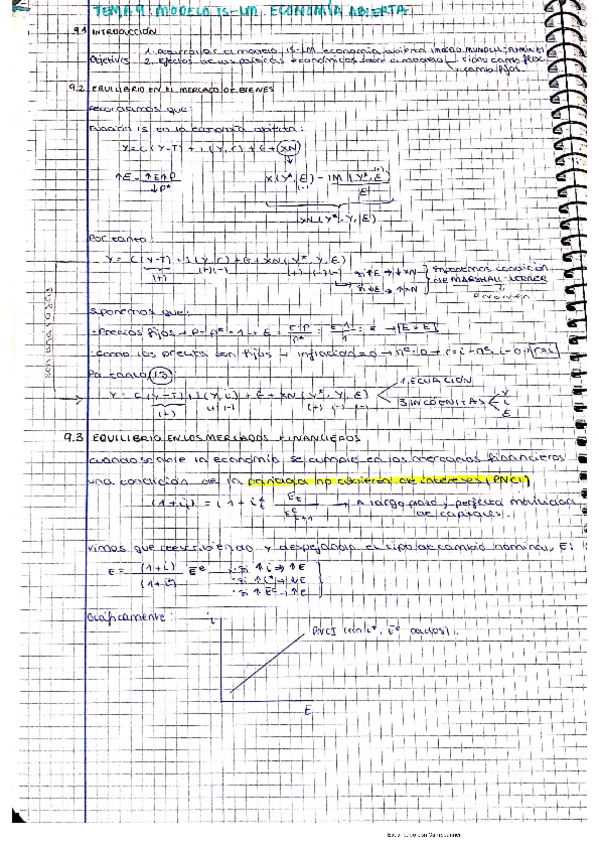 TEMA 9: MODELO IS-LM ECONOMÍA ABIERTA.
9.1 INTRODUCCIÓN
Objetivos 1. Desarrollar el modelo IS-LM economía abierta (MODELO MUNDELL-FLEMING)
2. Efectos de las políticas económicas sobre el modelo tipos cambio flex
cambio fijos.
9.2 EQUILIBRIO EN EL MERCADO DE BIENES
Recordamos que:
Ecuación IS en la economía abierta:
Y = C(Y-T) + I(Y,r) + G + XN
↑E = ↑E↑P / ↓P*
X(Y*, E) - IM(Y, E) / E
XN(Y*, Y, E)
Por tanto:
Y = C(Y-T) + I(Y,r) + G + XN(Y*, Y, E)
(+) (+)(-) (+) (-)(-) si ↑E → ↓XN
si ↓E → ↑XN
Suponemos condición de MARSHALL-LERNER
Suponemos que:
· Precios fijos → P = P* = 1 → E = E·P / P* = E·1 / 1 = E → E = E
· Como los precios son fijos → inflación = 0 → πe = 0 → r = i - πe = i - 0 → r = i
Por tanto IS
Y = C(Y-T) + I(Y,i) + G + XN(Y*, Y, E) 1 ECUACIÓN
(+) (+)(-) (+) (-) (-) 3 INCÓGNITAS Y
i
E
9.3 EQUILIBRIO EN LOS MERCADOS FINANCIEROS
Cuando se abre la economía se cumple en los mercados financieros
una condición de la paridad no cubierta de intereses (PNCI)
(1+i) = (1+i*) Et / Eet+1 → A largo plazo y perfecta movilidad
de capitales.
Vimos que reescribiendo y despejando el tipo de cambio nominal, E:
E = (1+i) / (1+i*) Ee · si ↑i → ↑E
· si ↑i* → ↓E
· si ↑Ee → ↑E
Gráficamente: i
PNCI (con i*, Ee dados).
E